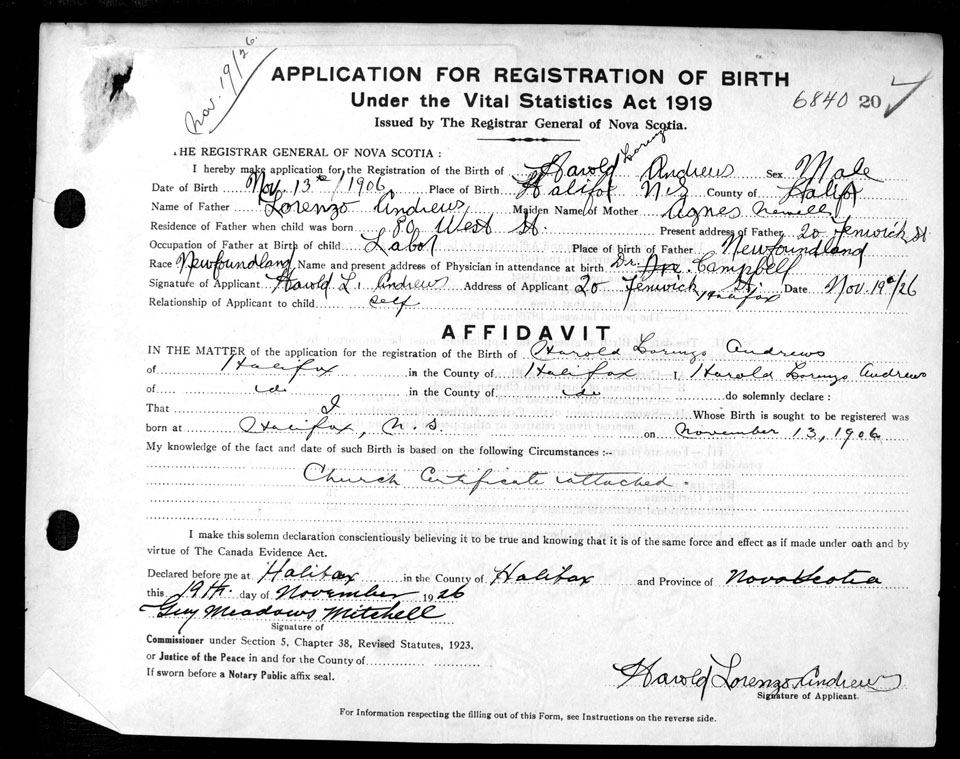 Nov. 19/26.
APPLICATION FOR REGISTRATION OF BIRTH
Under the Vital Statistics Act 1919
6840 20
Issued by The Registrar General of Nova Scotia.
THE REGISTRAR GENERAL OF NOVA SCOTIA :
I hereby make application for the Registration of the Birth of Harold Lorenzo Andrews Sex Male
Date of Birth Nov. 13th/1906 Place of Birth Halifax N.S County of Halifax
Name of Father Lorenzo Andrews Maiden Name of Mother Agnes Newell
Residence of Father when child was born 80 West St. Present address of Father 20 Fenwick St
Occupation of Father at Birth of child Labor Place of birth of Father Newfoundland
Race Newfoundland Name and present address of Physician in attendance at birth Dr. Campbell
Signature of Applicant Harold L. Andrews Address of Applicant 20 Fenwick St. Halifax Date Nov. 19th/26
Relationship of Applicant to child self
AFFIDAVIT
IN THE MATTER of the application for the registration of the Birth of Harold Lorenzo Andrews
of Halifax in the County of Halifax I, Harold Lorenzo Andrews
of do in the County of do do solemnly declare :
That I Whose Birth is sought to be registered was
born at Halifax, N.S. on November 13, 1906
My knowledge of the fact and date of such Birth is based on the following Circumstances :--
Church Certificate attached.
I make this solemn declaration conscientiously believing it to be true and knowing that it is of the same force and effect as if made under oath and by
virtue of The Canada Evidence Act.
Declared before me at Halifax in the County of Halifax and Province of Nova Scotia
this 19th. day of November 1926
Guy Meadows Mitchell
Signature of
Commissioner under Section 5, Chapter 38, Revised Statutes, 1923.
or Justice of the Peace in and for the County of
If sworn before a Notary Public affix seal.
Harold Lorenzo Andrews
Signature of Applicant.
For Information respecting the filling out of this Form, see Instructions on the reverse side.